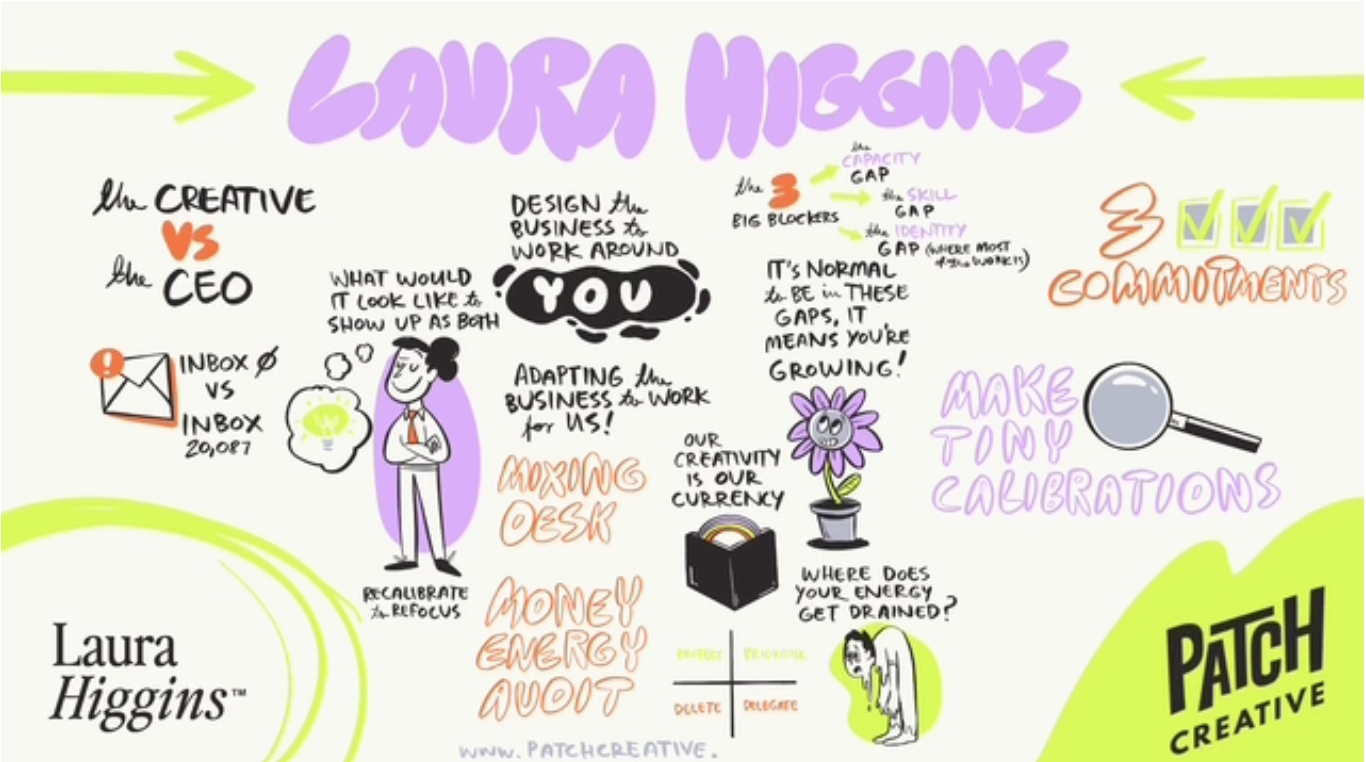 LAURA HIGGINS
the CREATIVE
VS
the CEO
INBOX Ø
VS
INBOX
20,087
WHAT WOULD
IT LOOK LIKE to
SHOW UP AS BOTH
RECALIBRATE
to REFOCUS
DESIGN the
BUSINESS to
WORK AROUND
YOU
ADAPTING the
BUSINESS to WORK
for US!
MIXING
DESK
MONEY
ENERGY
AUDIT
the 3
BIG BLOCKERS
the
CAPACITY
GAP
the SKILL
GAP
the IDENTITY
GAP (WHERE MOST
of the WORK IS)
IT'S NORMAL
to BE in THESE
GAPS, IT
MEANS YOU'RE
GROWING!
OUR
CREATIVITY
IS OUR
CURRENCY
WHERE DOES
YOUR ENERGY
GET DRAINED?
PROTECT PRIORITISE
DELETE DELEGATE
3
COMMITMENTS
MAKE
TINY
CALIBRATIONS
Laura
Higgins™
PATCH
CREATIVE
WWW.PATCHCREATIVE.